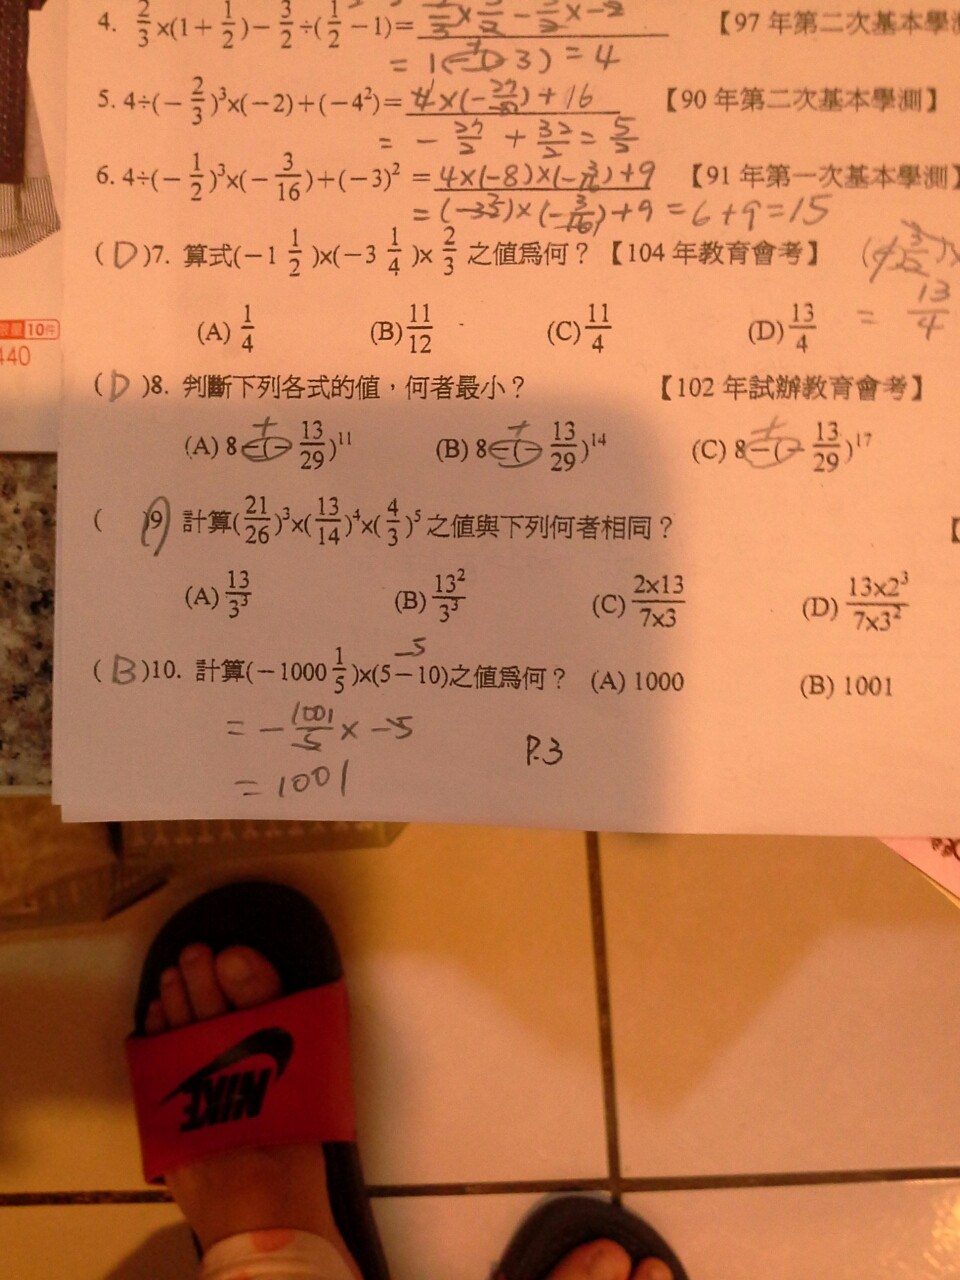 4. 2/3×(1+1/2)−3/2÷(1/2−1)= 【97年第二次基本學測
= 1(−(−)3) = 4
5. 4÷(−2/3)³×(−2)+(−4²)= 4×(−27/8)+16 【90年第二次基本學測】
= −27/2 + 32/2 = 5/2
6. 4÷(−1/2)³×(−3/16)+(−3)² = 4×(−8)×(−3/16)+9 【91年第一次基本學測】
= (−32)×(−3/16)+9 = 6+9=15
(D)7. 算式(−1 1/2)×(−3 1/4)×2/3 之值為何?【104年教育會考】
= 13/4
(A) 1/4 (B) 11/12 (C) 11/4 (D) 13/4
(D)8. 判斷下列各式的值,何者最小? 【102年試辦教育會考】
(A) 8−(−13/29)¹¹ (B) 8−(−13/29)¹⁴ (C) 8−(−13/29)¹⁷
+ + +
( )9. 計算(21/26)³×(13/14)⁴×(4/3)⁵ 之值與下列何者相同? 【
(A) 13/3³ (B) 13²/3³ (C) 2×13/7×3 (D) 13×2³/7×3²
−5
(B)10. 計算(−1000 1/5)×(5−10)之值為何? (A) 1000 (B) 1001
= −1001/5 × −5
= 1001
P.3
限量10件
440
NIKE